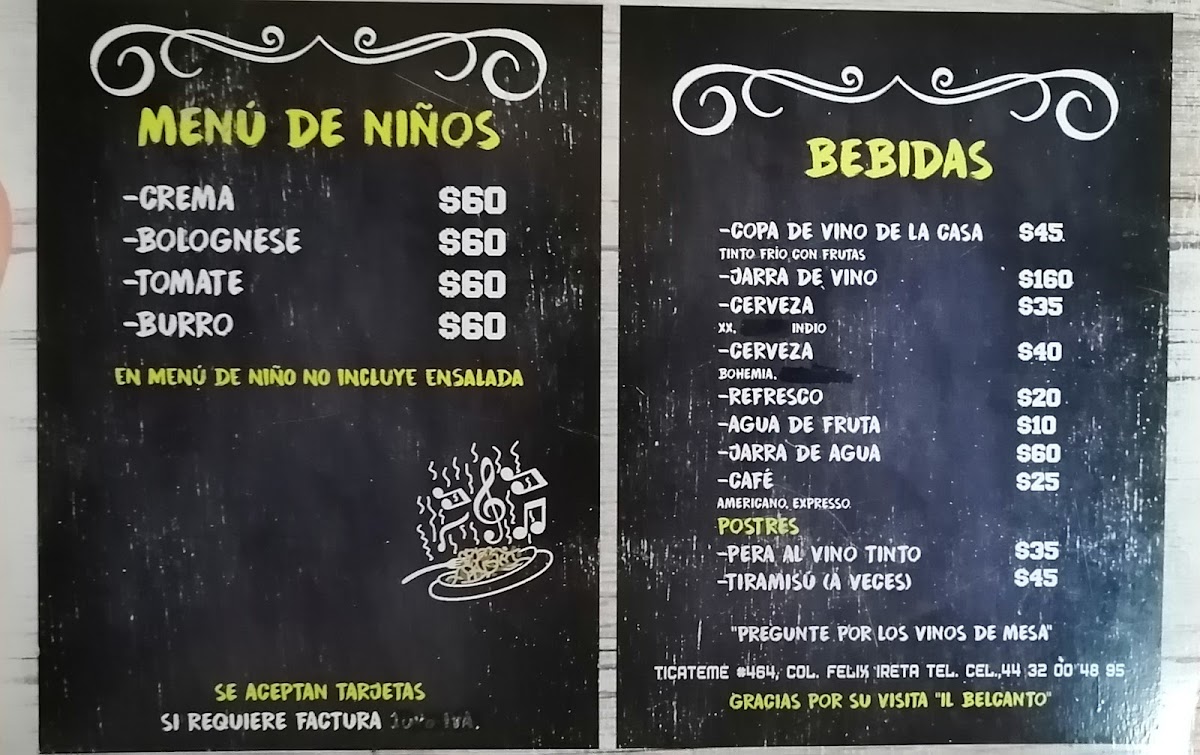 MENÚ DE NIÑOS
-CREMA $60
-BOLOGNESE $60
-TOMATE $60
-BURRO $60
EN MENÚ DE NIÑO NO INCLUYE ENSALADA
SE ACEPTAN TARJETAS
SI REQUIERE FACTURA IVA.
BEBIDAS
-COPA DE VINO DE LA CASA $45
TINTO FRÍO CON FRUTAS
-JARRA DE VINO $160
-CERVEZA $35
XX, INDIO
-CERVEZA $40
BOHEMIA,
-REFRESCO $20
-AGUA DE FRUTA $10
-JARRA DE AGUA $60
-CAFÉ $25
AMERICANO, EXPRESSO
POSTRES
-PERA AL VINO TINTO $35
-TIRAMISÚ (A VECES) $45
"PREGUNTE POR LOS VINOS DE MESA"
TICATEME #464, COL. FELIX IRETA TEL. CEL.,44 32 00 48 95
GRACIAS POR SU VISITA "IL BELCANTO"